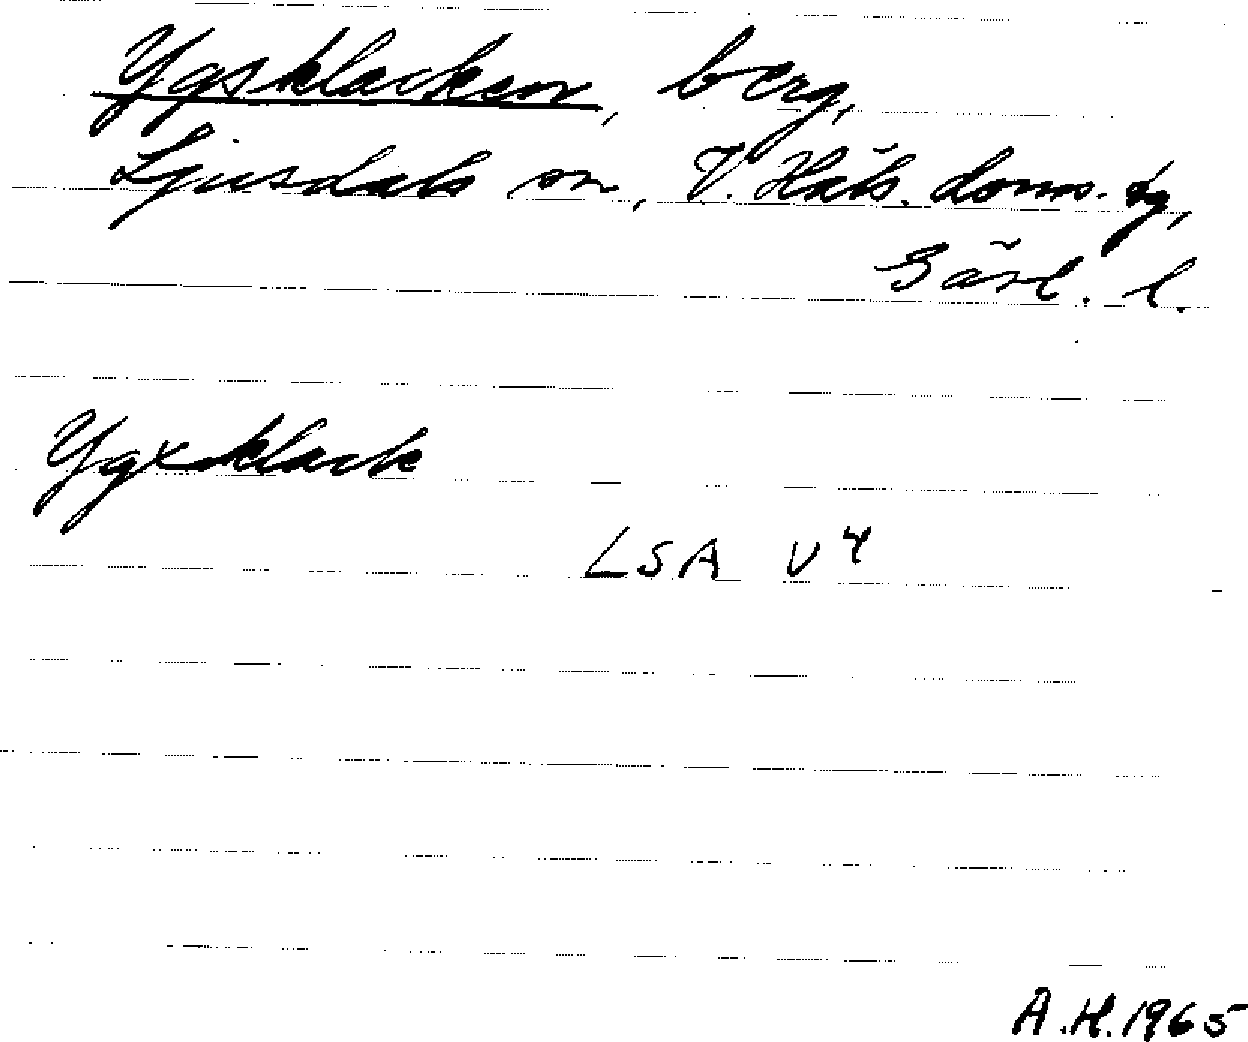 Ygsklacken, berg,
Ljusdals sn, V. Häls. doms. tg,
Gävl. l.
Ygsklack
LSA V4
A.H. 1965